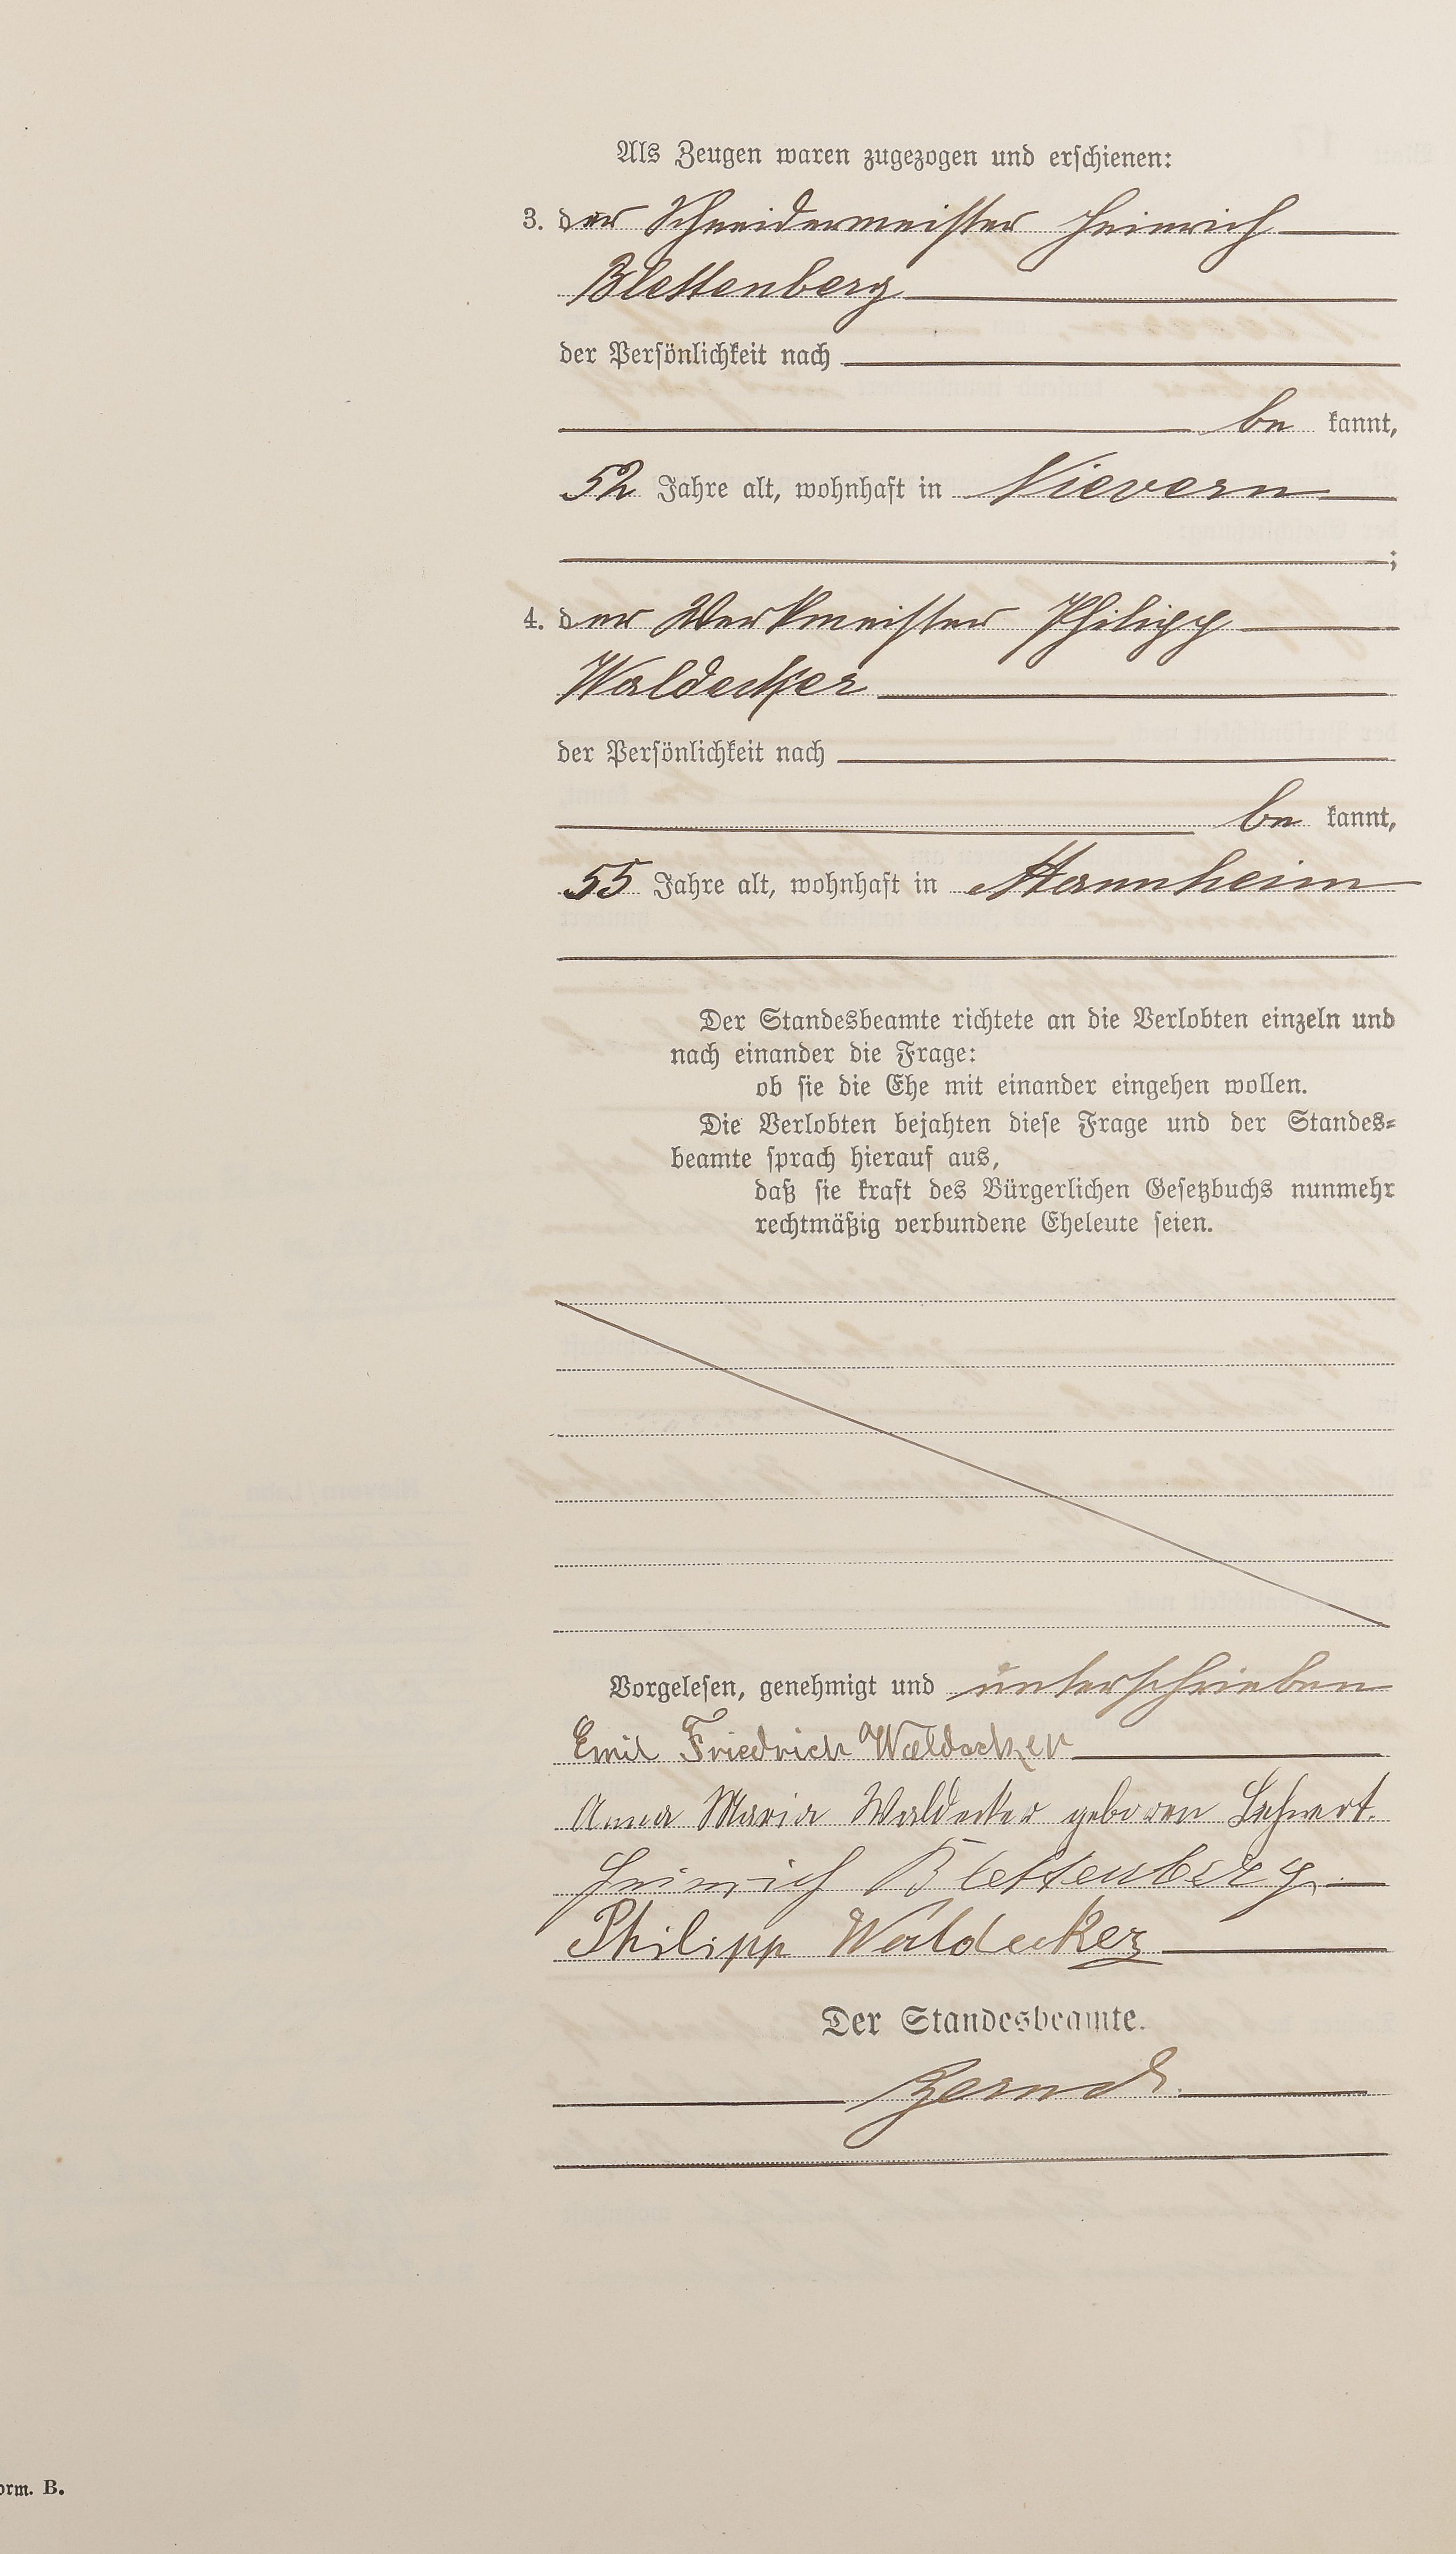 Als Zeugen waren zugezogen und erschienen:
3. der Schneidermeister Heinrich
Blettenberg
der Persönlichkeit nach
be kannt,
52 Jahre alt, wohnhaft in Nievern
;
4. der Werkmeister Philipp
Waldecker
der Persönlichkeit nach
be kannt,
55 Jahre alt, wohnhaft in Mannheim
Der Standesbeamte richtete an die Verlobten einzeln und
nach einander die Frage:
ob sie die Ehe mit einander eingehen wollen.
Die Verlobten bejahten diese Frage und der Standes-
beamte sprach hierauf aus,
daß sie kraft des Bürgerlichen Gesetzbuchs nunmehr
rechtmäßig verbundene Eheleute seien.
Vorgelesen, genehmigt und unterschrieben
Emil Friedrich Waldecker
Anna Maria Waldecker geboren
Heinrich Blettenberg
Philipp Waldecker
Der Standesbeamte.
orm. B.